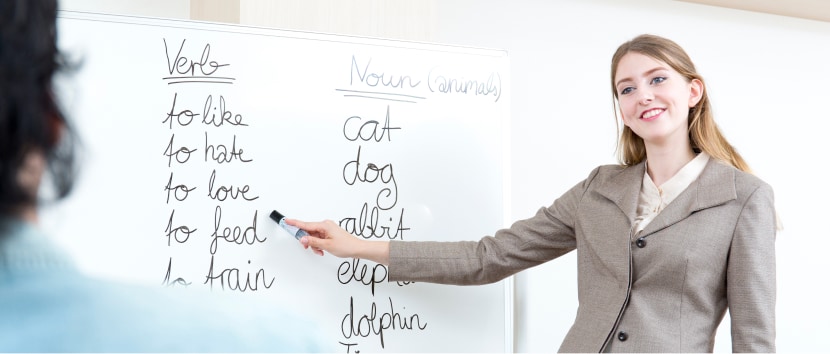 Verb
to like
to hate
to love
to feed
to train
Noun (animals)
cat
dog
rabbit
dolphin